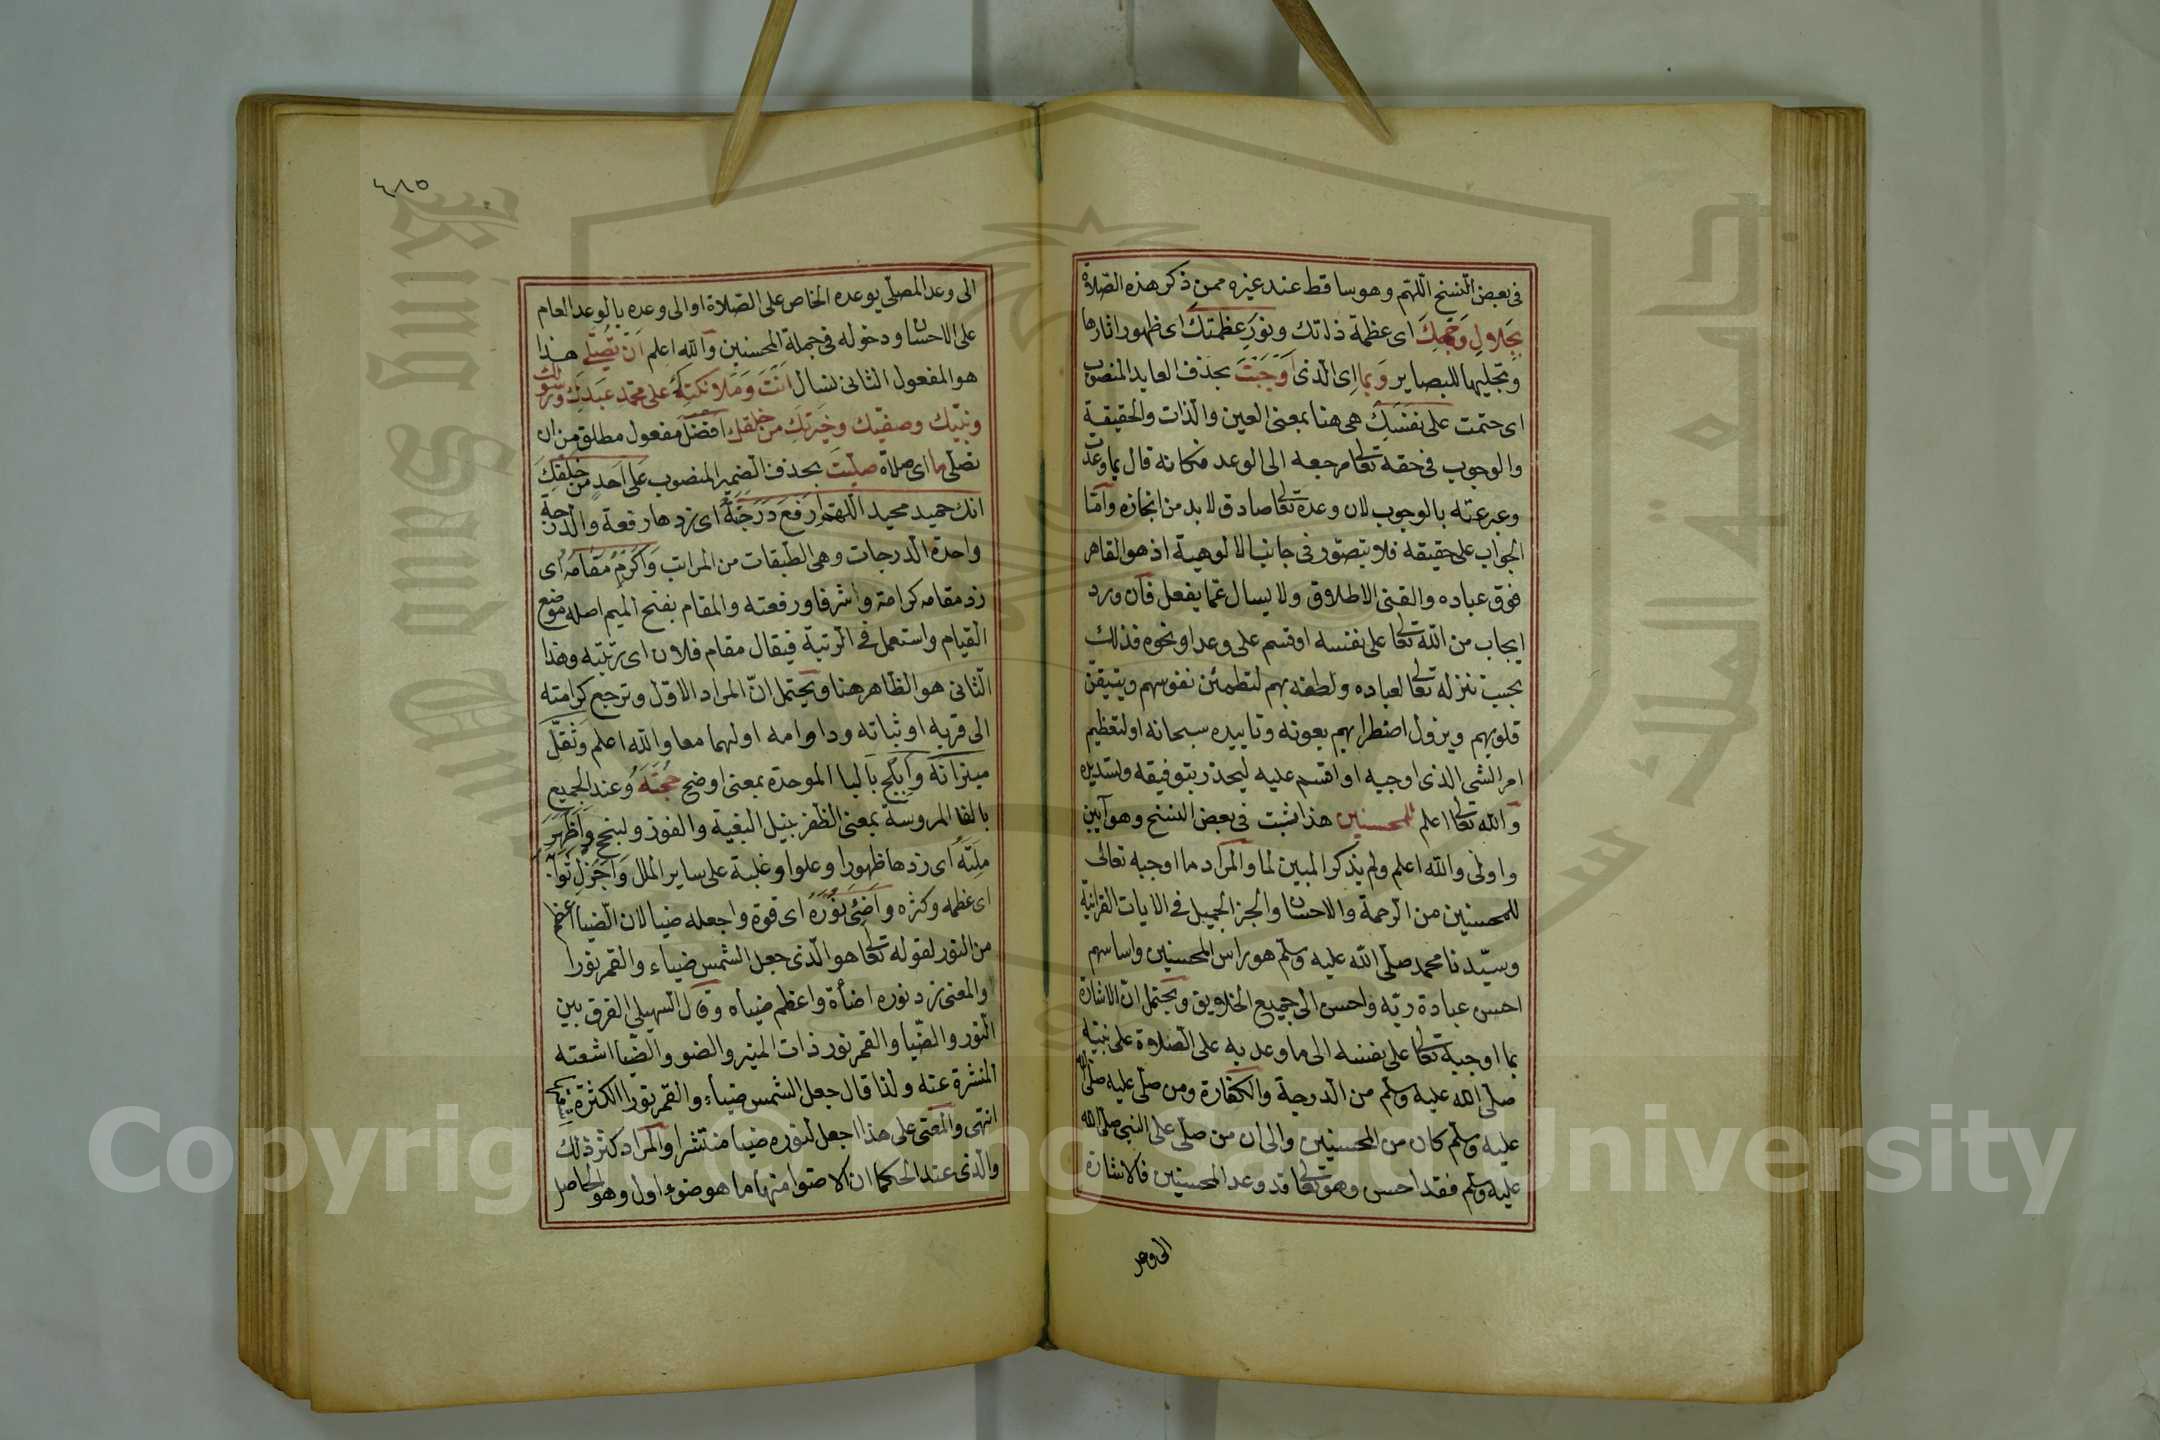 فى بعض النسخ اللهم وهو ساقط عند غيره ممن ذكر هذه الصلاة
بجلال وجهك اى عظمة ذاتك ونور عظمتك اى ظهور اثارها
وتجليها للبصاير وبما اى الذى اوجبت بحذف العايد المنصوب
اى حتمت على نفسك هى هنا بمعنى العين والذات والحقيقة
والوجوب فى حقه تعالى مرجعه الى الوعد فكانه قال بما وعدت
وعبر عنه بالوجوب لان وعده تعالى صادق لا بد من انجازه واما
الجواب على حقيقة فلا يتصور فى جانب الالوهية اذ هو القاهر
فوق عباده والغنى الاطلاق ولا يسال عما يفعل فان ورد
ايجاب من الله تعالى على نفسه او قسم على وعد او نحوه فذلك
بحسب تنزله تعالى لعباده ولطفه بهم لتطمئن نفوسهم ويتيقن
قلوبهم ويزول اضطرابهم بعونه وتاييده سبحانه او لتعظيم
امر الشى الذى اوجبه او اقسم عليه ليحذر بتوفيقه وتسديده
والله تعالى اعلم للمحسنين هذا ثبت فى بعض النسخ وهو ابين
واولى والله اعلم ولم يذكر المبين لما والمراد ما اوجبه تعالى
للمحسنين من الرحمة والاحسان والجزا الجميل فى الايات القرانية
وسيدنا محمد صلى الله عليه وسلم هو راس المحسنين واساسهم
احسن عبادة ربه واحسن الى جميع الخلايق ويحتمل ان الاشارة
بما اوجبه تعالى على نفسه الى ما وعد به على الصلاوة على نبيه
صلى الله عليه وسلم من الدرجة والكفارة ومن صلى عليه صلى الله
عليه وسلم كان من المحسنين والى ان من صلى على النبى صلى الله
عليه وسلم فقد احسن وهو تعالى قد وعد المحسنين فالاشارة
الى وعد
٤٨٥
الى وعد المصلى بوعده الخاص على الصلاة او الى وعده بالوعد العام
على الاحسان ودخوله فى جملة المحسنين والله اعلم ان تصلى هذا
هو المفعول الثانى لنسال انت وملائكته على محمد عبدك ورسولك
ونبيك وصفيك وخيرتك من خلقك افضل مفعول مطلق من ان
تصلى ما اى صلاة صليت بحذف الضمير المنصوب على احد من خلقك
انك حميد مجيد اللهم ارفع درجته اى زدها رفعة والدرجة
واحدة الدرجات وهى الطبقات من المراتب واكرم مقامه اى
زد مقامه كرامة واشرفا ورفعته والمقام بفتح الميم اصله موضع
القيام واستعمل فى الرتبة فيقال مقام فلان اى رتبته وهذا
الثانى هو الظاهر هنا ويحتمل ان المراد الاول وترجع كرامته
الى قربه او ثباته ودوامه او لهما معا والله اعلم وثقل
ميزانه وابلج باليا الموحدة بمعنى اوضح حجته وعند الجميع
بالفا المروسة بمعنى الظفر بنيل البغية والفوز واظهر
ملته اى زدها ظهورا وعلوا وغلبة على ساير الملل واجزل ثوابه
اى عظمه وكثره واضئ نوره اى قوة واجعله ضيا لان الضيا اعظم
من النور لقوله تعالى هو الذى جعل الشمس ضياء والقمر نورا
والمعنى زد نوره اضأة واعظم ضياه وقال السهيلى الفرق بين
النور والضيا والقمر نور ذات المنير والضو والضيا اشعته
المنشرة عنه ولذا قال جعل الشمس ضياء والقمر نورا لكثرة
انتهى والمعنى على هذا اجعل لنوره ضيا منتشرا والمراد كثر ذلك
والذى عند الحكما ان الاضوا منها ما هو ضوء اول وهو الحاصل
Copyright © King Saud University
King Saud University
جامعة الملك سعود